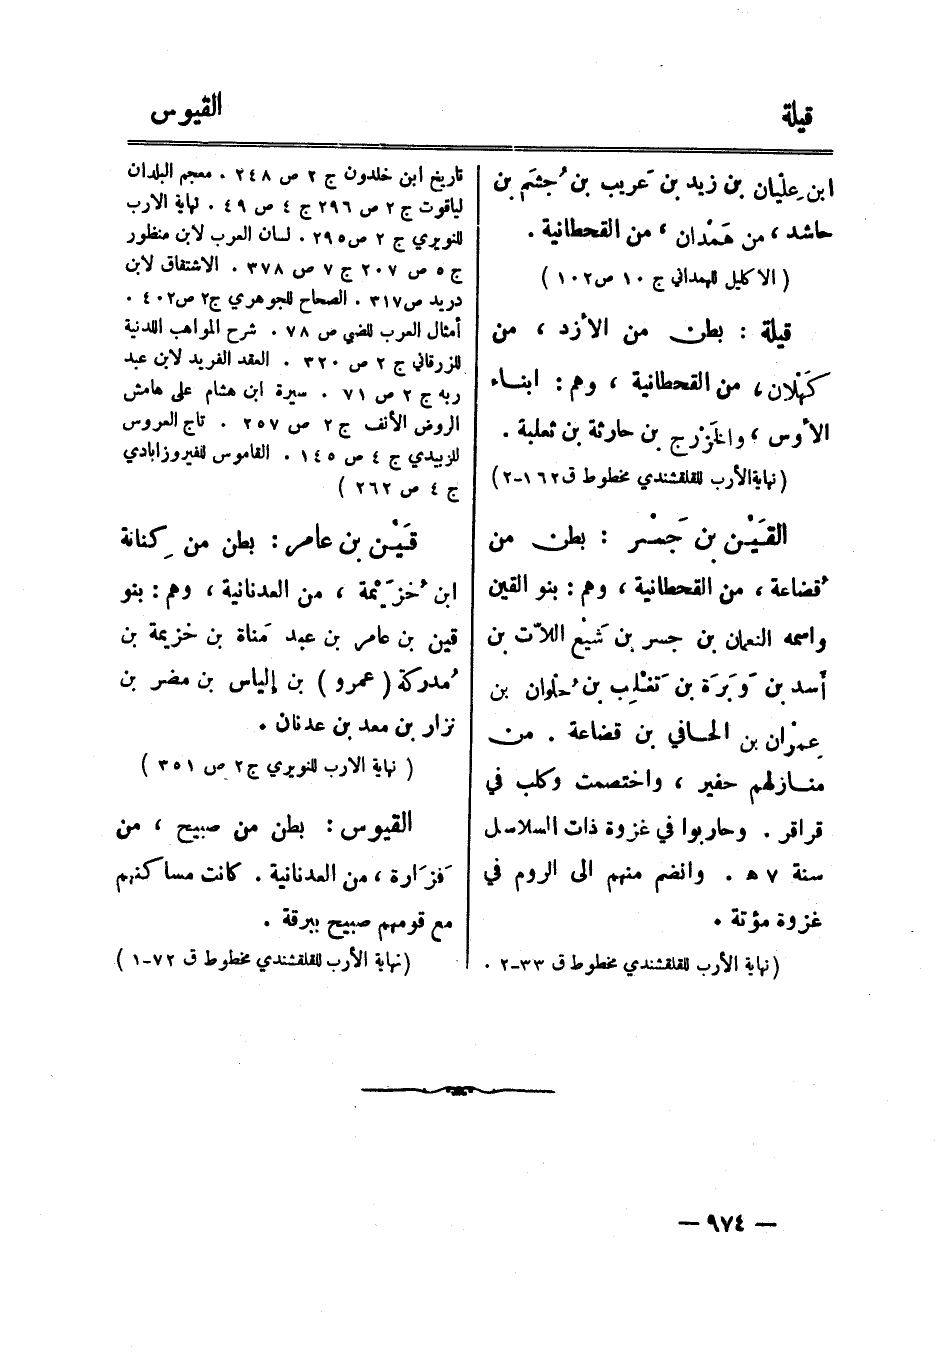 قيلة
القيوس
ابن عِلْيان بن زيد بن عَريب بن جُشَم بن
حاشد، من هَمْدان، من القحطانية.
( الاكليل للهمداني ج ١٠ ص١٠٢ )
قيلة : بطن من الأزد ، من
كَهْلان، من القحطانية ، وهم : ابناء
الأوس، والخَزْرج بن حارثة بن ثعلبة .
(نهاية الأرب للقلقشندي مخطوط ق١٦٢-٢)
القَيْن بن جَسْر : بطن من
قُضاعة ، من القحطانية ، وهم : بنو القين
واسمه النعمان بن جسر بن شَيْع اللاّت بن
أسد بن وَبَرَة بن تَغْلِب بن حُلوان بن
عِمْران بن الحافي بن قضاعة . من
منازلهم حفير ، واختصمت وكلب في
قراقر . وحاربوا في غزوة ذات السلاسل
سنة ٧ هـ . وانضم منهم الى الروم في
غزوة مؤتة .
(نهاية الأرب للقلقشندي مخطوط ق ٣٣-٢ .
تاريخ ابن خلدون ج ٢ ص ٢٤٨ . معجم البلدان
لياقوت ج ٢ ص ٢٩٦ ج ٤ ص ٤٩ . نهاية الارب
للنويري ج ٢ ص٢٩٥ . لسان العرب لابن منظور
ج ٥ ص ٢٠٧ ج ٧ ص ٣٧٨ . الاشتقاق لابن
دريد ص٣١٧ . الصحاح للجوهري ج٢ ص٤٠٢ .
أمثال العرب للضي ص ٧٨ . شرح المواهب اللدنية
للزرقاني ج ٢ ص ٣٢٠ . العقد الفريد لابن عبد
ربه ج ٢ ص ٧١ . سيرة ابن هشام على هامش
الروض الأنف ج ٢ ص ٢٥٧ . تاج العروس
للزبيدي ج ٤ ص ١٤٥ . القاموس للفيروزابادي
ج ٤ ص ٢٦٢ )
قَيْن بن عامر : بطن من كِنانة
ابن خُزَيْمة ، من العدنانية ، وهم : بنو
قين بن عامر بن عبد مَناة بن خزيمة بن
مُدركة ( عمرو ) بن إلياس بن مضر بن
نزار بن معد بن عدنان .
( نهاية الارب للنويري ج٢ ص ٣٥١ )
القيوس : بطن من صبيح ، من
فَزَارة ، من العدنانية . كانت مساكنهم
مع قومهم صبيح ببرقة .
(نهاية الأرب للقلقشندي مخطوط ق ٧٢-١ )
— ٩٧٤ —